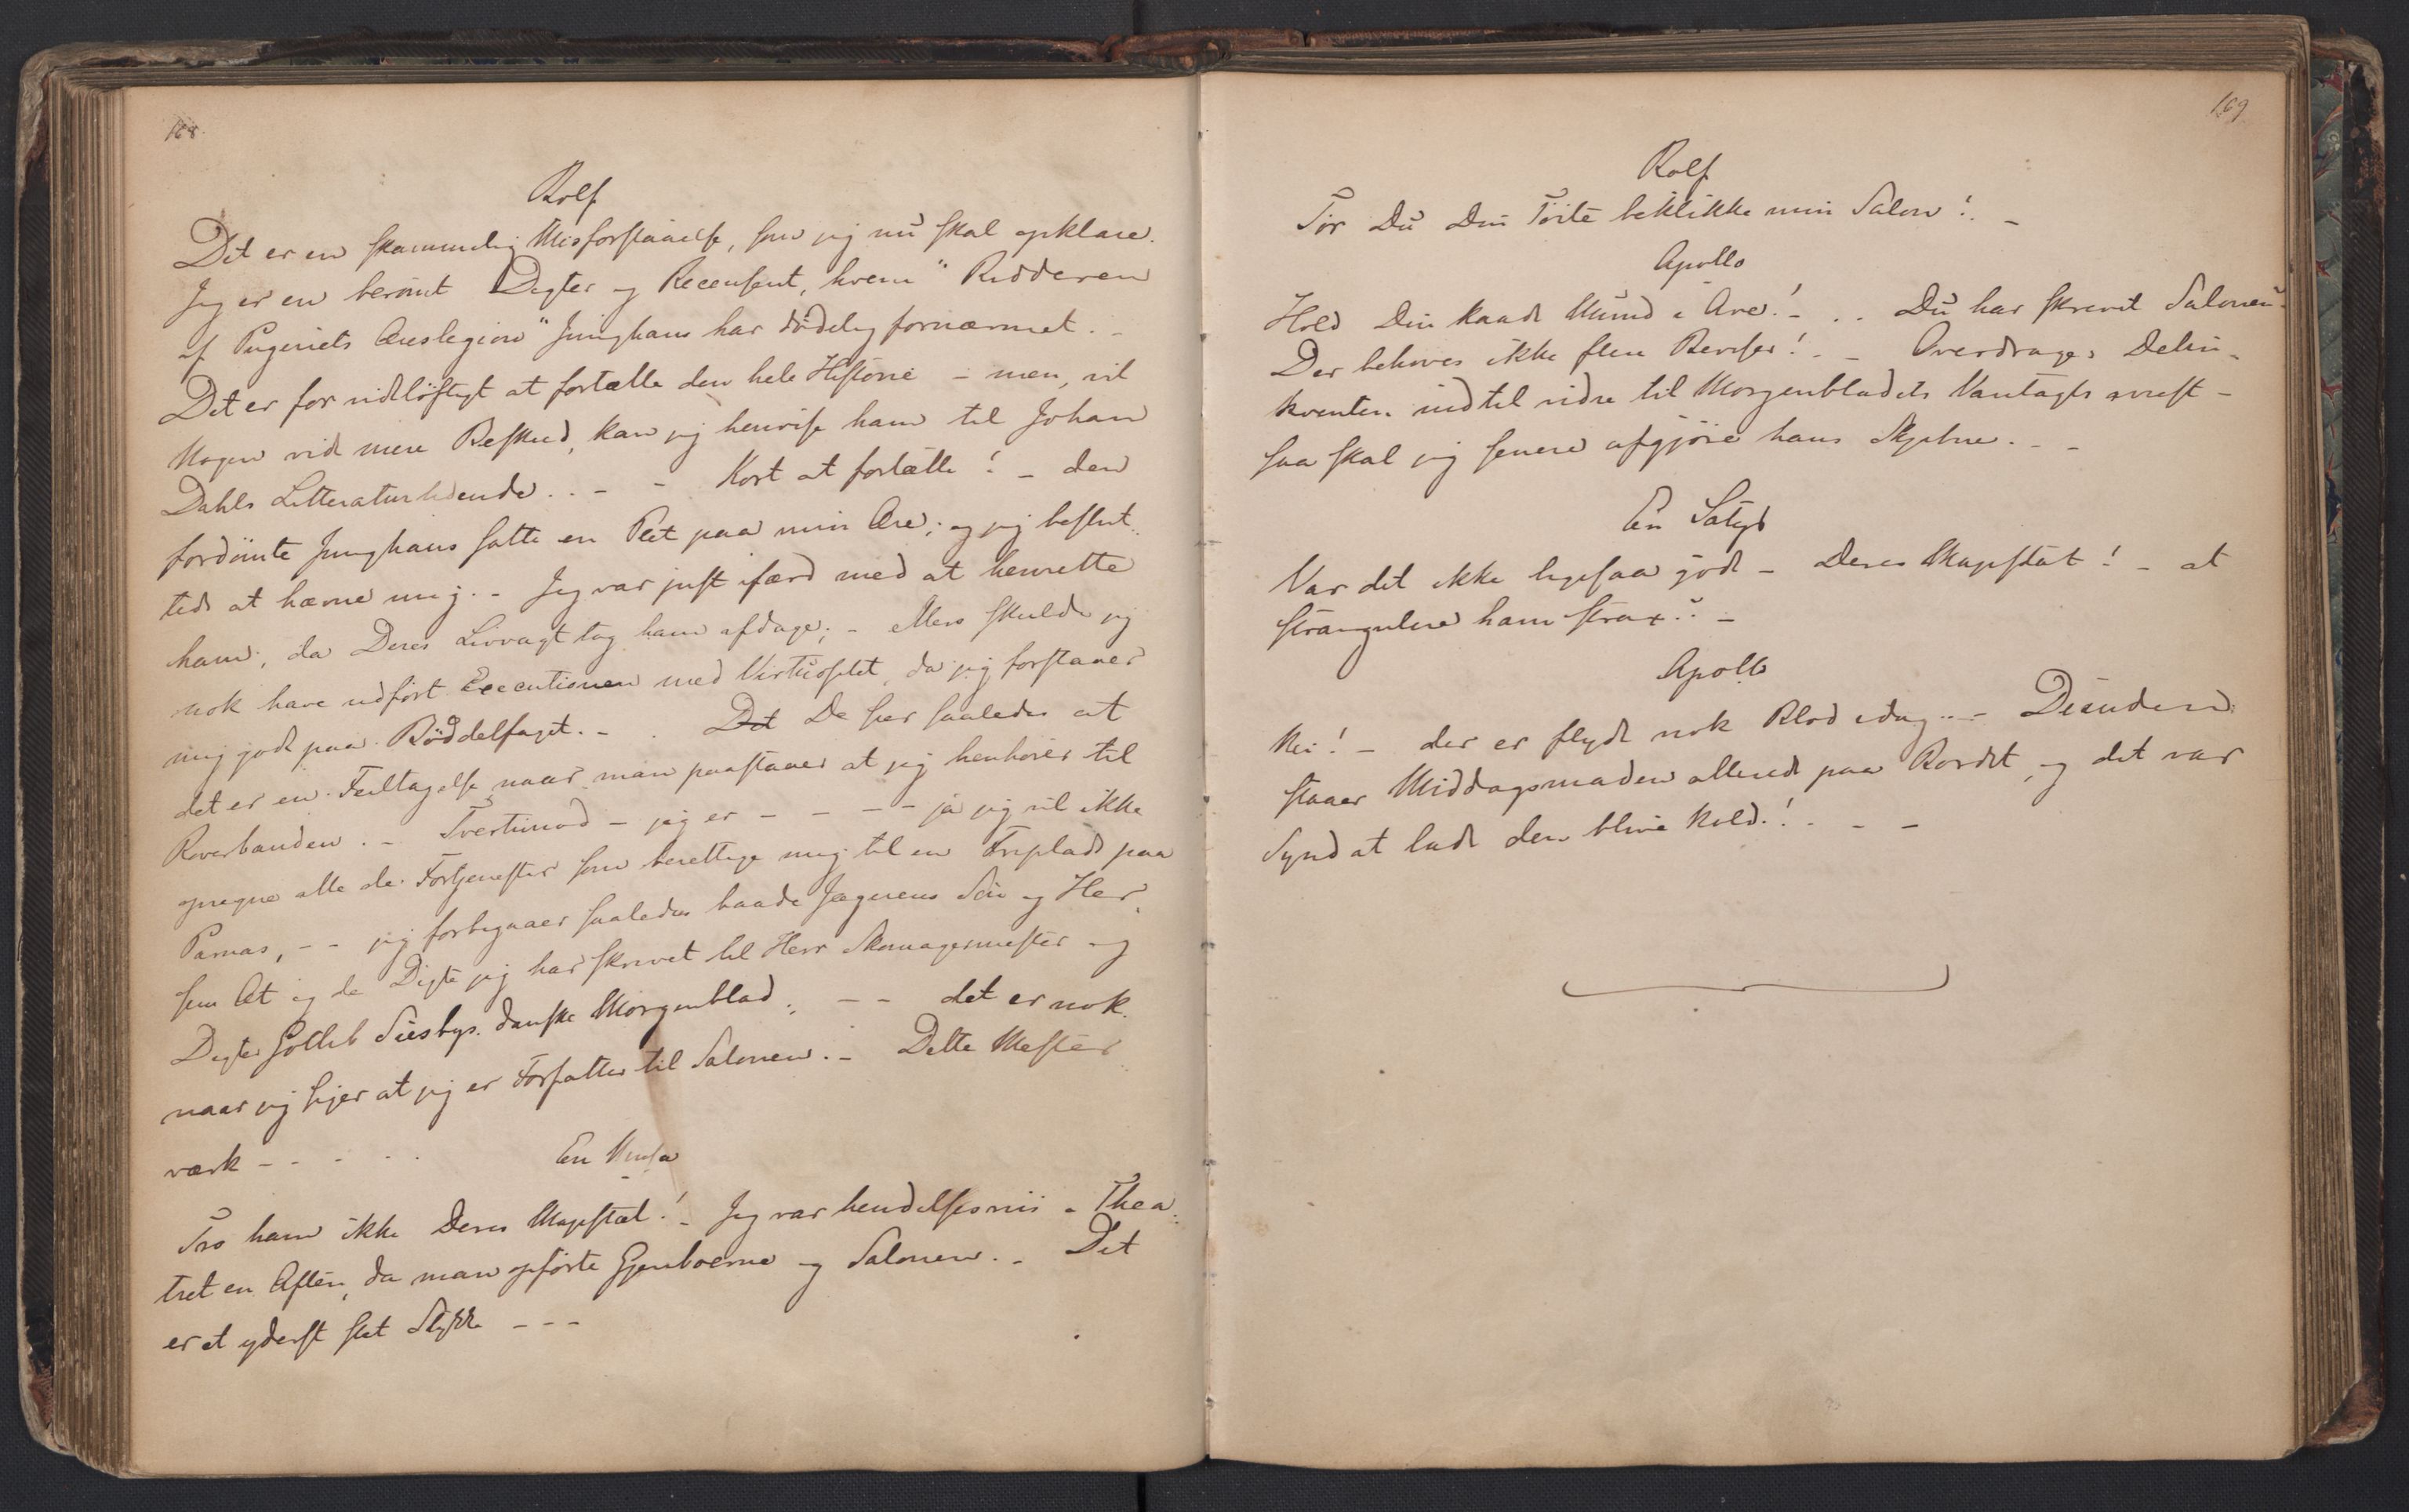 168.
Rolf
Det er en skammelig Misforstaaelse, som jeg nu skal opklare.
Jeg er en berömt Digter og Recensent, hvem "Ridderen
af Pugeriets Æreslegion" Junghans har dödelig fornærmet. -
Det er for vidtlöftigt at fortælle den hele Historie - men, vil
Nogen vide mere Besked, kan jeg henvise ham til Johan
Dahls Litteraturtidende. . - - Kort at fortælle! - den
fordömte Junghans satte en Plet paa min Ære; og jeg beslut-
tede at hævne mig. - Jeg var just ifærd med at henrette
ham, da Deres Livvagt tog ham afdage; - ellers skulde jeg
nok have udfört Executionen med Virtuositet, da jeg forstaaer
mig godt paa Böddelfaget. - . Det De seer saaledes at
det er en Feiltagelse naar man paastaaer at jeg henhörer til
Röverbanden. - Tvertimod - jeg er - - - - ja jeg vil ikke
opregne alle de Fortjenester som berettige mig til en Friplads paa
Parnas, - - jeg forbigaaer saaledes baade Jægerens Sön og Her
som At og de Digte jeg har skrevet til Herr Skomagermester og
Digter Gotlieb Siesbys danske Morgenblad; - - det er nok
naar jeg siger at jeg er Forfatter til Salonen. - Dette Mester
værk - - - - .
En Musa
Tro ham ikke Deres Majestæt! - Jeg var hendelsesviis i Thea-
tret en Aften, da man opförte Gjenboerne og Salonen. - Det
er et yderst slet Stykke - - -
169
Rolf
Tör Du Din Töite beklikke min Salon! -
Apollo
Hold Din kaade Mund i Ave! - . . Du har skrevet Salonen -
Der behöves ikke flere Beviser! - - Overdrages Delin-
kventen indtil videre til Morgenbladets Varetægts arrest -
saa skal jeg senere afgjöre hans Skjebne. - -
En Satyr
Var det ikke ligesaa godt - Deres Majestæt! - at
strangulere ham strax? -
Apollo
Nei! - der er flydt nok Blod idag. - - Desuden
staaer Middagsmaden allerede paa Bordet, og det var
Synd at lade den blive kold! - - -